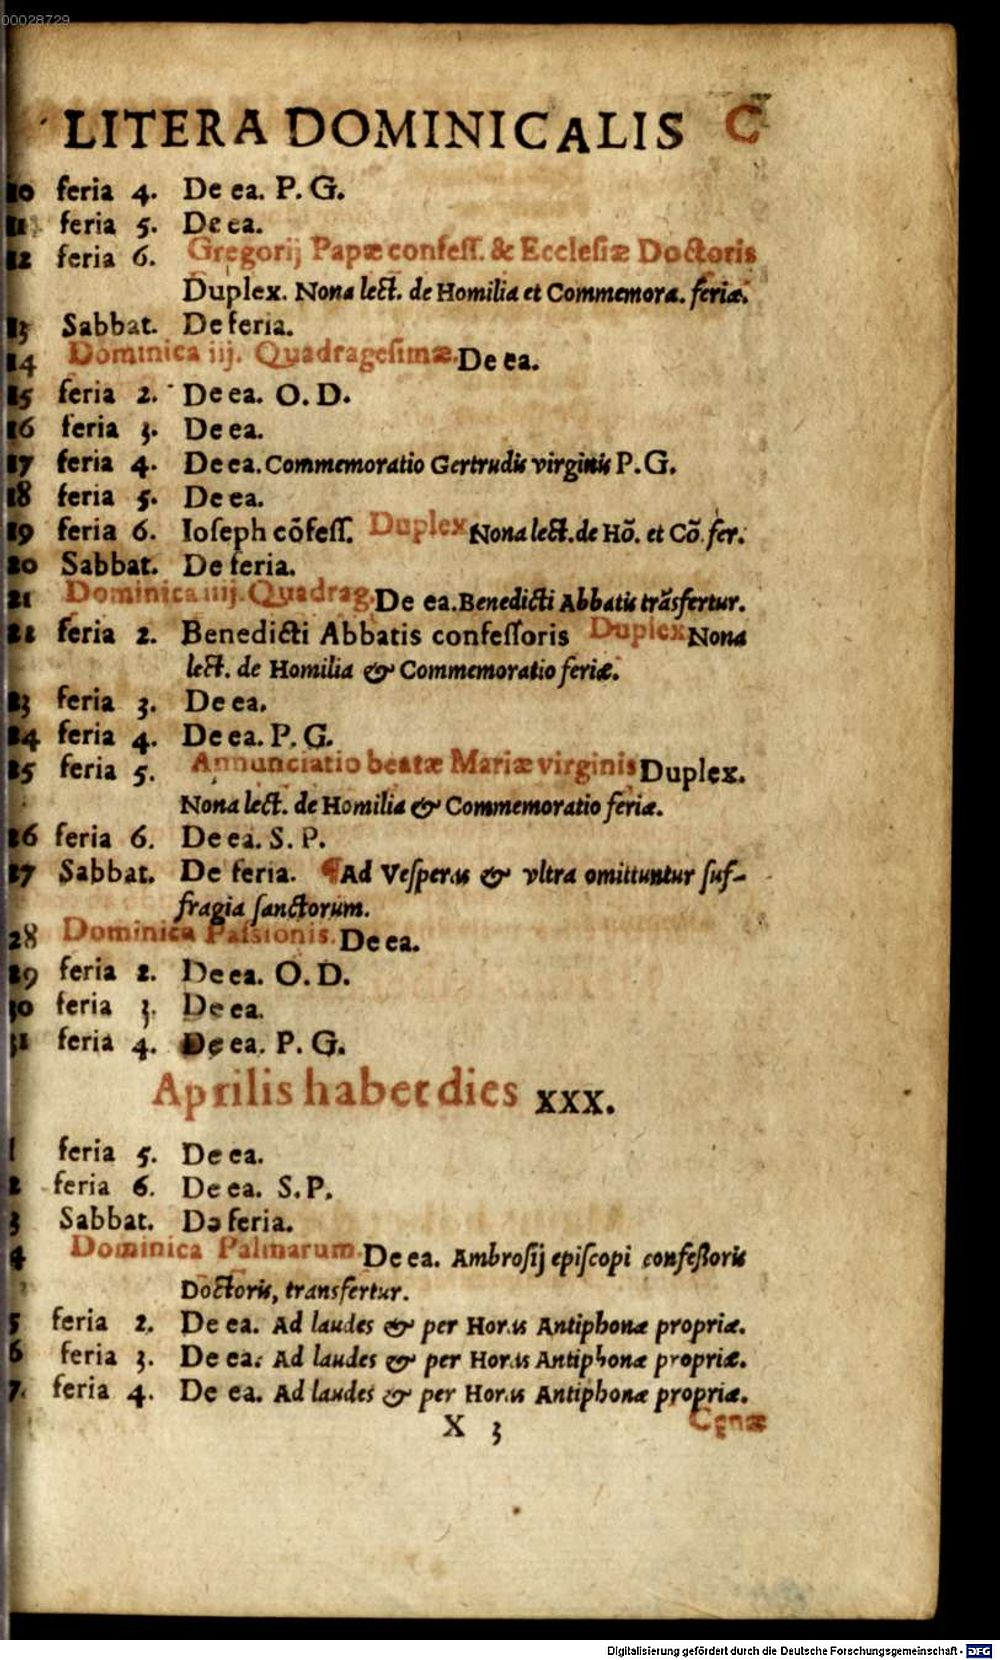 00028729
LITERA DOMINICALIS C
10 feria 4. De ea. P. G.
11 feria 5. De ea.
12 feria 6. Gregorij Papæ confeſſ. & Eccleſiæ Doctoris
Duplex. Nona lect. de Homilia et Commemora. feriæ.
13 Sabbat. De feria.
14 Dominica iij. Quadrageſimæ. De ea.
15 feria 2. De ea. O. D.
16 feria 3. De ea.
17 feria 4. De ea. Commemoratio Gertrudis virginis P. G.
18 feria 5. De ea.
19 feria 6. Ioſeph cõfeſſ. Duplex Nona lect. de Hõ. et Cõ. fer.
20 Sabbat. De feria.
21 Dominica iiij. Quadrag. De ea. Benedicti Abbatis trãsfertur.
22 feria 2. Benedicti Abbatis confeſſoris Duplex Nona
lect. de Homilia & Commemoratio feriæ.
23 feria 3. De ea.
24 feria 4. De ea. P. G.
25 feria 5. Annunciatio beatæ Mariæ virginis Duplex.
Nona lect. de Homilia & Commemoratio feriæ.
26 feria 6. De ea. S. P.
27 Sabbat. De feria. ¶ Ad Veſperas & vltra omittuntur ſuf-
fragia ſanctorum.
28 Dominica Paſsionis. De ea.
29 feria 2. De ea. O. D.
30 feria 3. De ea.
31 feria 4. De ea. P. G.
Aprilis habet dies XXX.
1 feria 5. De ea.
2 feria 6. De ea. S. P.
3 Sabbat. De feria.
4 Dominica Palmarum. De ea. Ambroſij epiſcopi confeſſoris
Doctoris, transfertur.
5 feria 2. De ea. Ad laudes & per Horas Antiphonæ propriæ.
6 feria 3. De ea. Ad laudes & per Horas Antiphonæ propriæ.
7 feria 4. De ea. Ad laudes & per Horas Antiphonæ propriæ.
X 3 Cœnæ
Digitalisierung gefördert durch die Deutsche Forschungsgemeinschaft - DFG